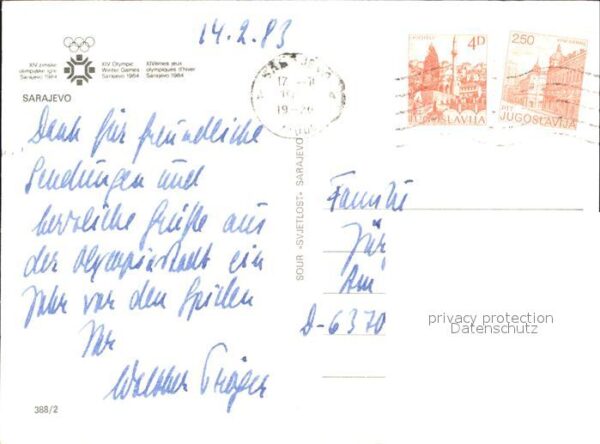 14.2.83
XIV zimske olimpijske igre Sarajevo 1984
XIV Olympic Winter Games Sarajevo 1984
XIVèmes jeux olympiques d'hiver Sarajevo 1984
SARAJEVO
Dank für freundliche
Sendungen und
herzliche Grüße aus
der Olympiastadt ein
Jahr vor den Spielen
Ihr
388/2
SOUR »SVJETLOST« SARAJEVO
SARAJEVO
4D
JUGOSLAVIJA
2.50
PTT
JUGOSLAVIJA
Familie
Am
D-6370
privacy protection
Datenschutz